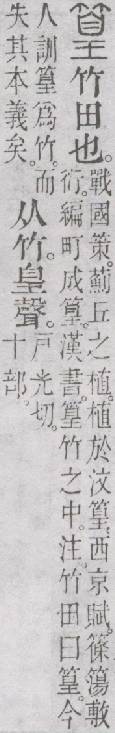 篁竹田也。
戰國策。薊丘之植。植於汶篁。西京賦。篠簜敷
衍。編町成篁。漢書。篁竹之中。注。竹田曰篁。今
人訓篁爲竹。而
失其本義矣。
从竹。皇聲。
戶光切。
十部。